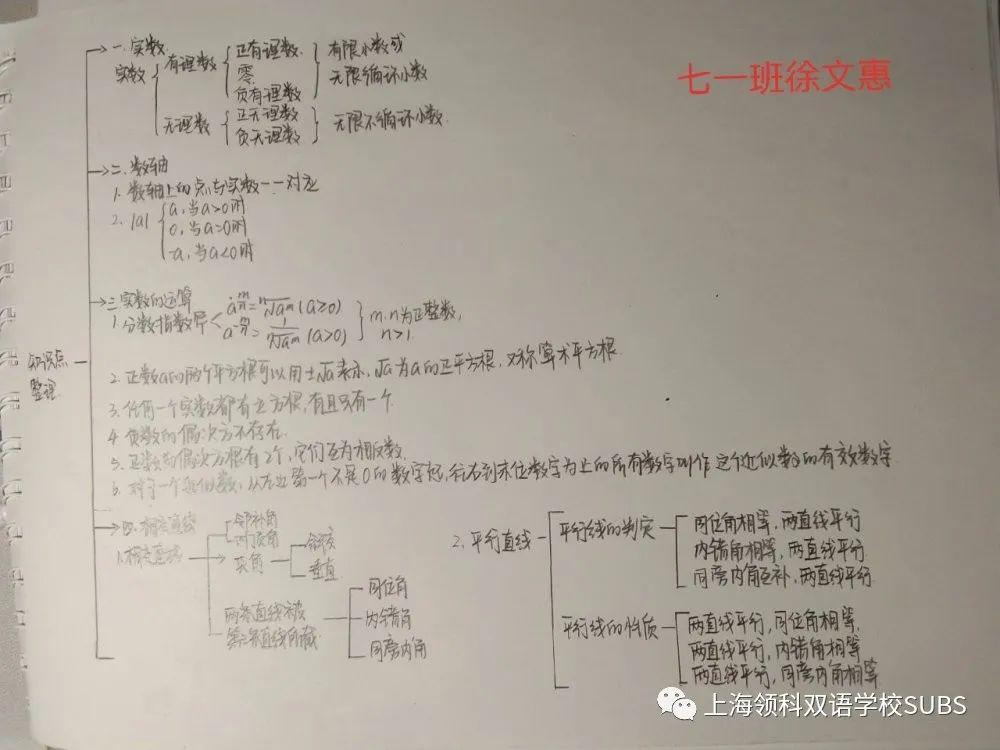 七一班徐文惠
知识点
整理
一.实数
实数
有理数
正有理数
零
负有理数
有限小数或
无限循环小数
无理数
正无理数
负无理数
无限不循环小数
二.数轴
1.数轴上的点与实数一一对应
2.|a|
a,当a>0时
0,当a=0时
-a,当a<0时
三.实数的运算
1.分数指数幂
a^(m/n)=ⁿ√a^m (a≥0)
a^(-m/n)=1/ⁿ√a^m (a>0)
m.n为正整数,
n>1.
2.正数a的两个平方根可以用±√a表示,√a为a的正平方根,又称算术平方根.
3.任何一个实数都有立方根,有且只有一个.
4.负数的偶次方不存在.
5.正数的偶次方根有2个,它们互为相反数.
6.对于一个近似数,从左边第一个不是0的数字起,往右到末位数字为止的所有数字叫作这个近似数的有效数字
四.相交直线
1.相交直线
邻补角
对顶角
夹角
斜交
垂直
两条直线被
第三条直线所截
同位角
内错角
同旁内角
2.平行直线
平行线的判定
同位角相等,两直线平行
内错角相等,两直线平行
同旁内角互补,两直线平行
平行线的性质
两直线平行,同位角相等,
两直线平行,内错角相等
两直线平行,同旁内角相等
上海领科双语学校SUBS